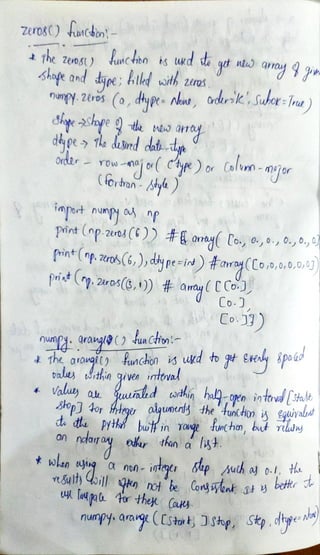 zeros() function:-
* The zeros() function is used to get new array of given
shape and dtype; filled with zeros.
numpy.zeros (a, dtype= None, order='K', Subok=True)
shape → shape of the new array
dtype → The desired data-type
order - row-major (ctype) or Column-major
(fortran-style)
import numpy as np
print (np.zeros(6)) # array( [0., 0., 0., 0., 0., 0
print (np.zeros(6,), dtype=int) # array([0,0,0,0,0,0])
print (np.zeros(3,1)) # array( [ [0.],
[0.],
[0.]])
numpy. arange() function:-
* The arange() function is used to get evenly spaced
values within given interval
* values are generated within half-open interval [start
stop] for integer arguments the function is equivalent
to the python built in range function, but returns
an ndarray rather than a list.
* when using a non-integer step such as 0.1, the
results will often not be Consistent, It is better to
use linspace for these Cases.
numpy. arange ([start, ] stop, step, dtype=None)